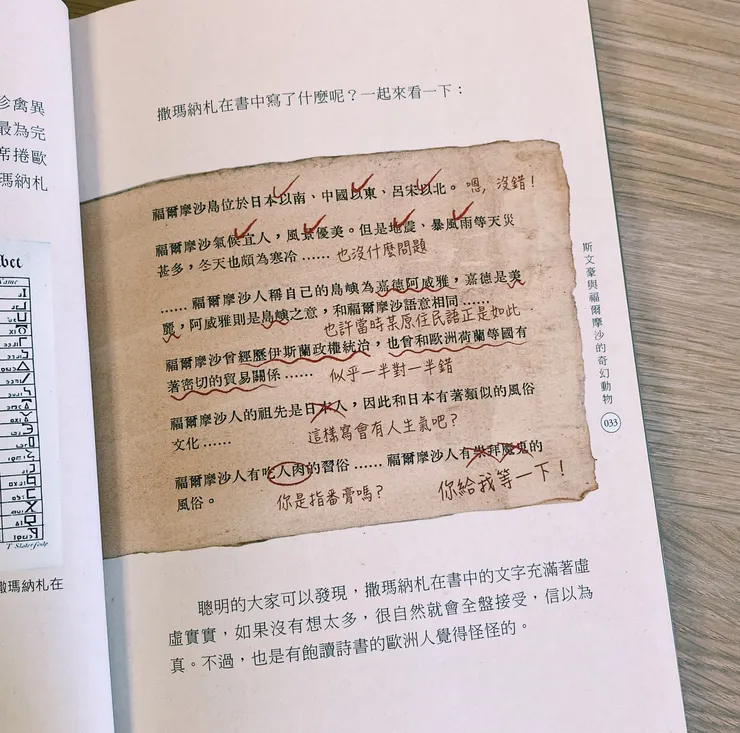 珍禽異
最為完
席捲歐
瑪納札
bet
Name
T Slater sculp
撒瑪納札在
撒瑪納札在書中寫了什麼呢?一起來看一下:
福爾摩沙島位於日本以南、中國以東、呂宋以北。 嗯,沒錯!
福爾摩沙氣候宜人,風景優美。但是地震、暴風雨等天災
甚多,冬天也頗為寒冷…… 也沒什麼問題
……福爾摩沙人稱自己的島嶼為嘉德阿威雅,嘉德是美
麗,阿威雅則是島嶼之意,和福爾摩沙語意相同……
也許當時某原住民語正是如此
福爾摩沙曾經歷伊斯蘭政權統治,也曾和歐洲荷蘭等國有
著密切的貿易關係…… 似乎一半對一半錯
福爾摩沙人的祖先是日本人,因此和日本有著類似的風俗
文化…… 這樣寫會有人生氣吧?
福爾摩沙人有吃人肉的習俗……福爾摩沙人有崇拜魔鬼的
風俗。 你是指番膏嗎? 你給我等一下!
聰明的大家可以發現,撒瑪納札在書中的文字充滿著虛
虛實實,如果沒有想太多,很自然就會全盤接受,信以為
真。不過,也是有飽讀詩書的歐洲人覺得怪怪的。
斯文豪與福爾摩沙的奇幻動物
033